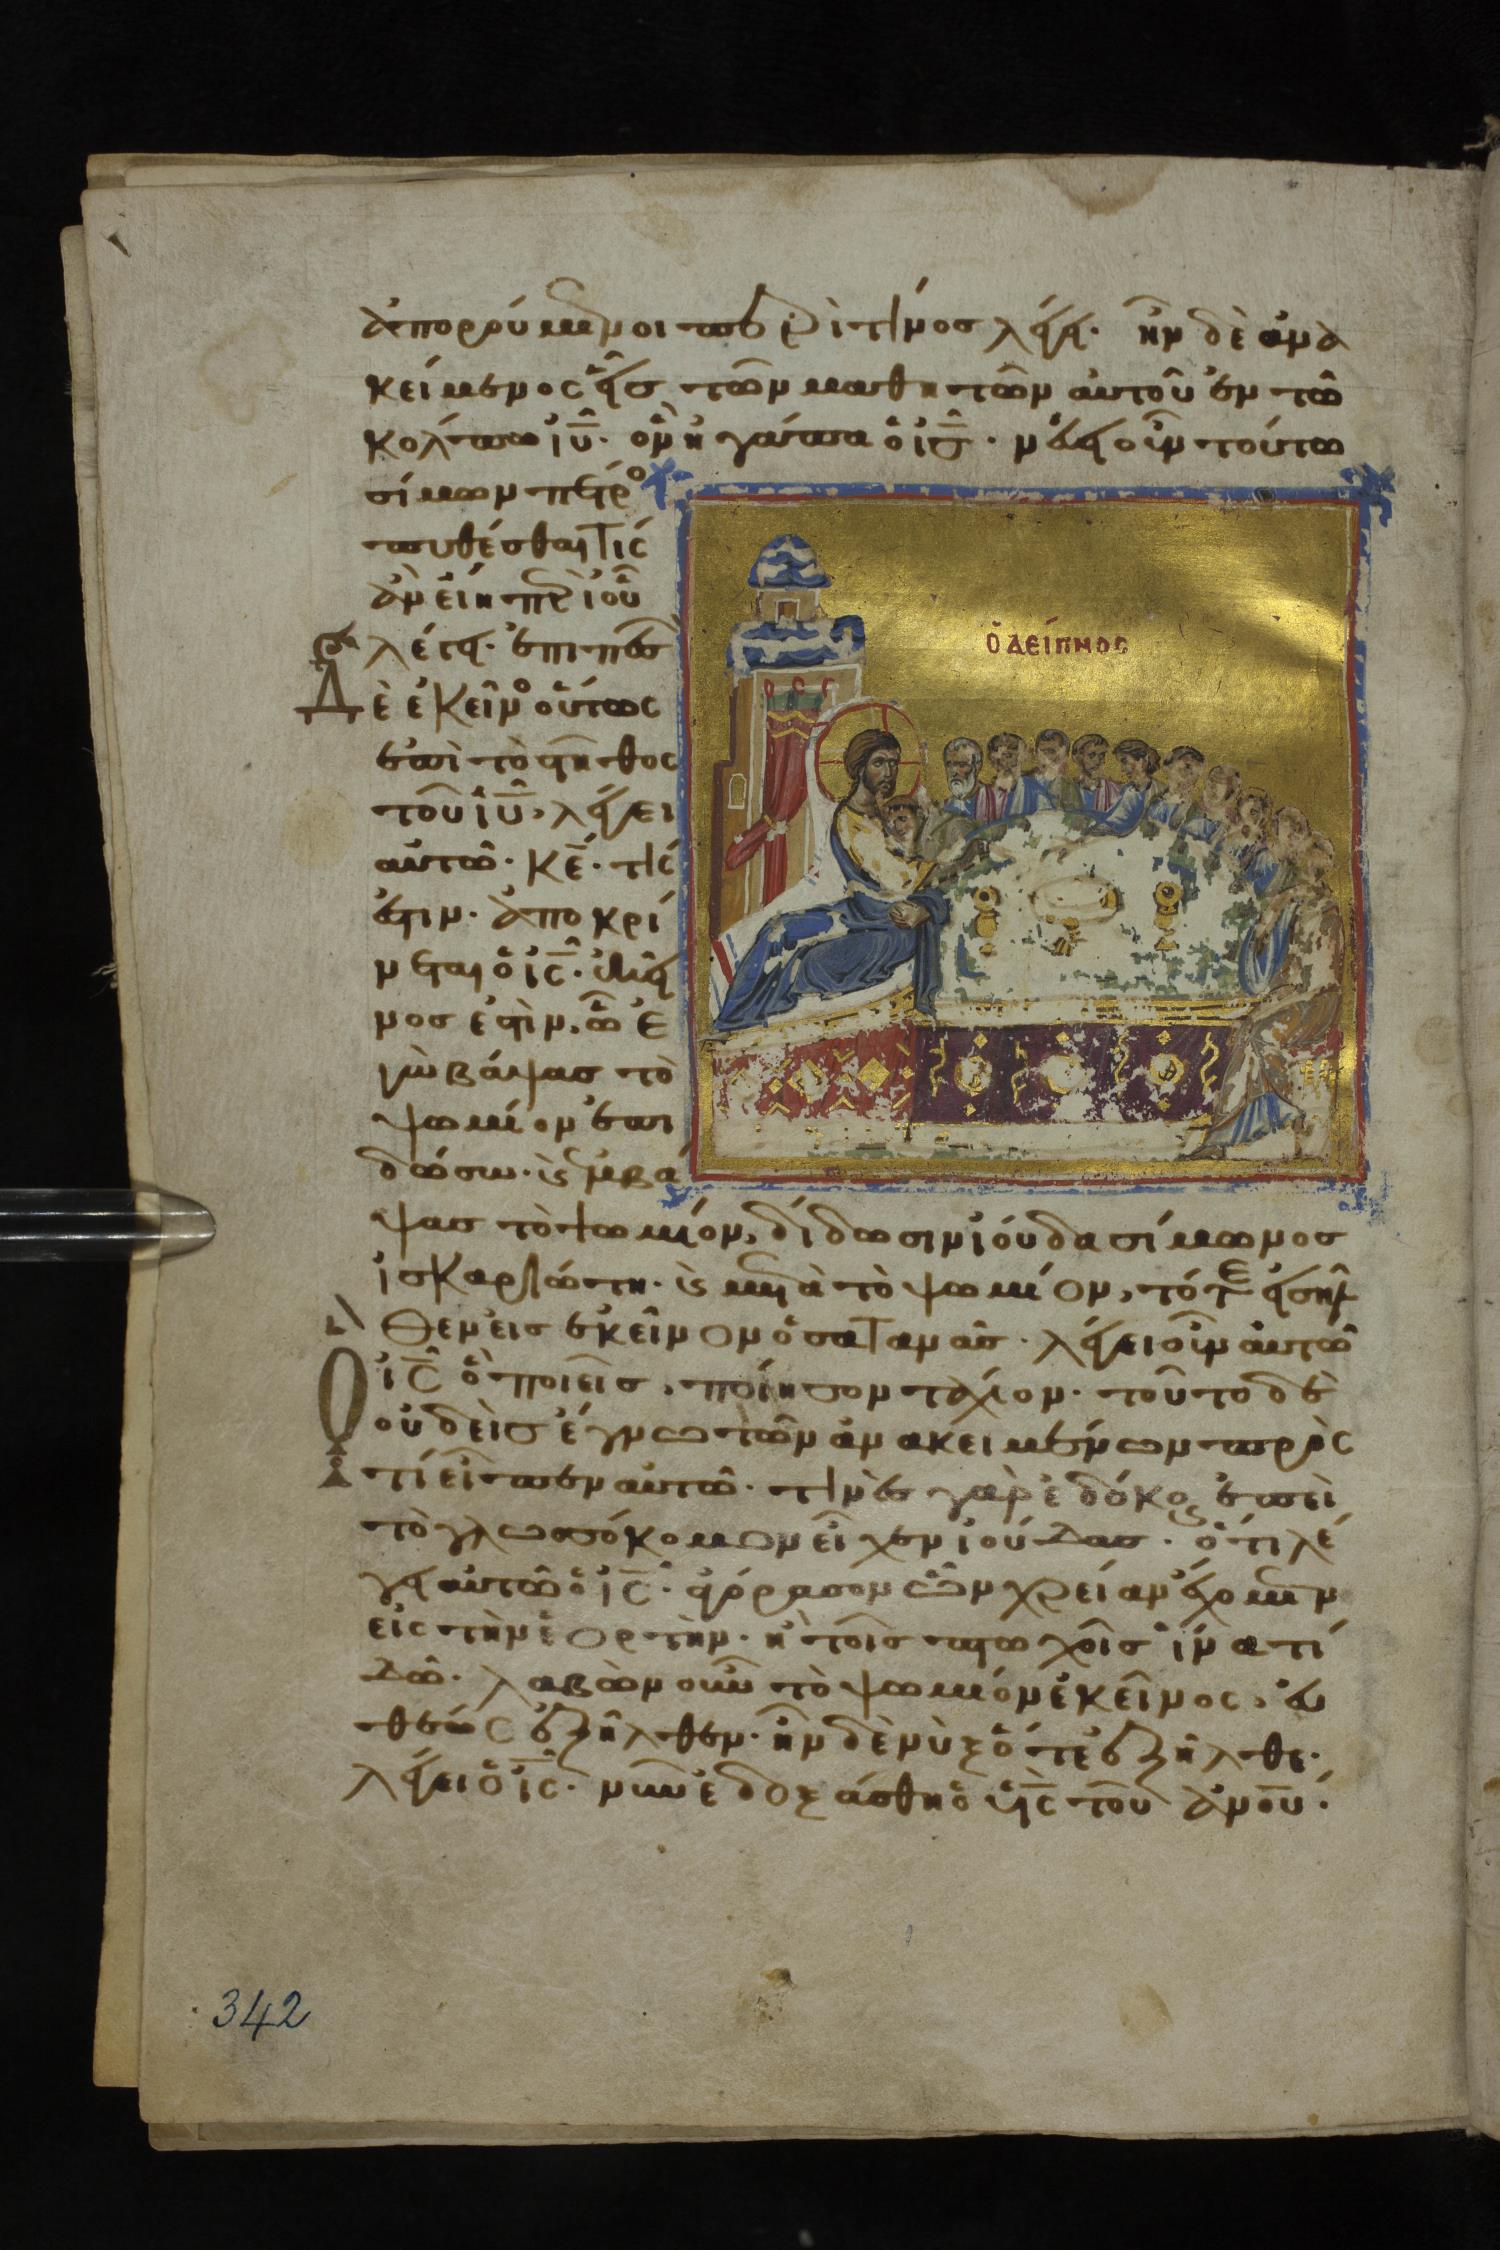 ἀπορούμενοι περὶ τίνος λέγει· ἦν δὲ ἀνα
κείμενος εἷς τῶν μαθητῶν αὐτοῦ ἐν τῶ
κόλπω ἰῦ· ὃν ἠγάπα ὁ ἰς· νεύει οὖν τούτω
σίμων πέτρο
πυθέσθαι τίς
ἂν εἴη περὶ οὗ
λέγει· ἐπιπεσ
Δὲ ἐκεῖνος οὕτως
ἐπὶ τὸ στῆθος
τοῦ ἰῦ, λέγει
αὐτῶ· κε· τίς
ἐστιν· ἀποκρί
νεται ὁ ἰς· ἐκεῖ
νος ἐστὶν, ὧ ἐ
γὼ βάψας τὸ
ψωμίον ἐπι
δώσω· καὶ ἐμβά
ψας τὸ ψωμίον, δίδωσιν ἰούδα σίμωνος
ἰσκαριώτη· καὶ μετὰ τὸ ψωμίον, τότε εἰσῆλ
θεν εἰς ἐκεῖνον ὁ σατανᾶς· λέγει οὖν αὐτῶ
Ὁ ἰς ὃ ποιεῖς, ποίησον τάχιον· τοῦτο δὲ
οὐδεὶς ἔγνω τῶν ἀνακειμένων πρὸς
τί εἶπεν αὐτῶ· τινὲς γὰρ ἐδόκουν ἐπεὶ
τὸ γλωσσόκομον εἶχεν ἰούδας· ὅτι λέ
γει αὐτῶ ὁ ἰς· ἀγόρασον ὧν χρείαν ἔχομεν
εἰς τὴν ἑορτὴν· ἢ τοῖς πτωχοῖς ἵνα τι
δῶ· λαβὼν οὖν τὸ ψωμίον ἐκεῖνος, εὐ
θέως ἐξῆλθεν· ἦν δὲ νὺξ ὅτε ἐξῆλθε·
λέγει ὁ ἰς· νῦν ἐδοξάσθη ὁ υἱὸς τοῦ ἀνου·
Ὁ ΔΕΊΠΝΟΣ
342